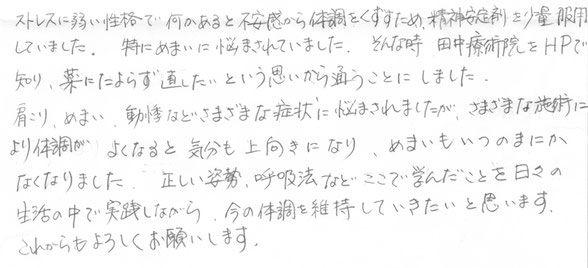 ストレスに弱い性格で何かあると不安感から体調をくずすため、精神安定剤を少量服用
していました。特にめまいに悩まされていました。そんな時 田中療術院をHPで
知り、薬にたよらず直したいという思いから通うことにしました。
肩こり、めまい、動悸などさまざまな症状に悩まされましたが、さまざまな施術に
より体調が よくなると 気分も上向きになり、めまいもいつのまにか
なくなりました。正しい姿勢、呼吸法などここで学んだことを日々の
生活の中で実践しながら、今の体調を維持していきたいと思います。
これからもよろしくお願いします。